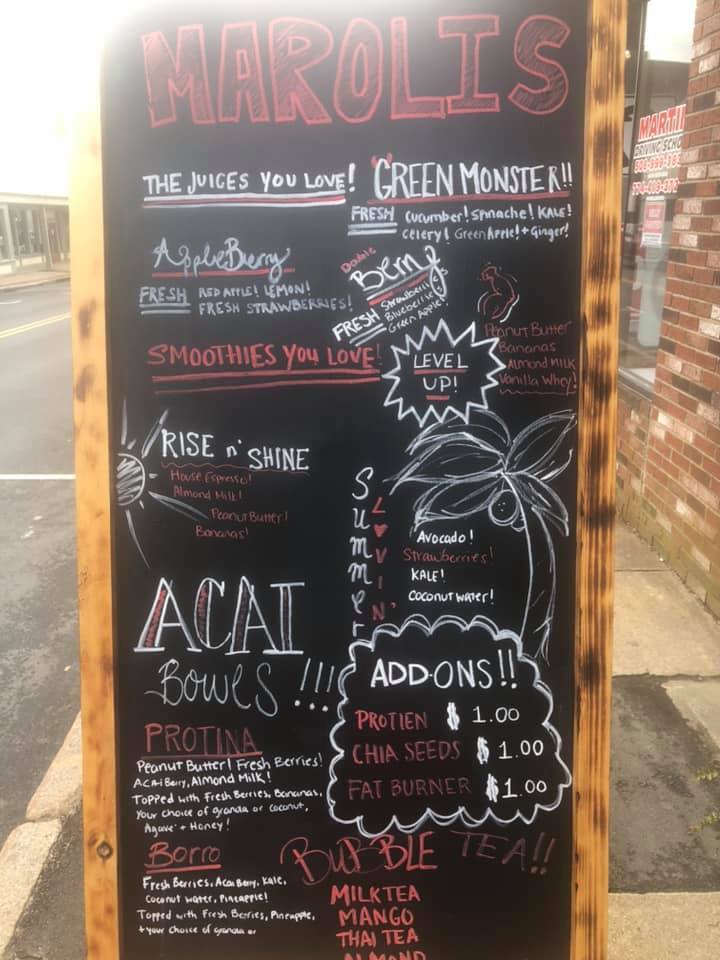 MAROLIS
THE JUICES YOU LOVE!
AppleBerry
FRESH RED APPLE! LEMON!
FRESH STRAWBERRIES!
"GREEN MONSTER!!
FRESH Cucumber! Spinache! KALE!
Celery! Green Apple! + Ginger!
Double
Berry
FRESH Strawberries
Blueberries
Green Apple!
SMOOTHIES YOU LOVE!
LEVEL
UP!
Peanut Butter
Bananas
Almond MILK
Vanilla Whey!
RISE n' SHINE
House Espresso!
Almond Milk!
Peanut Butter!
Bananas!
Summer
LOVIN'
Avocado!
Strawberries!
KALE!
Coconut water!
ACAI
BOWLS !!!
PROTINA
Peanut Butter! Fresh Berries!
ACAi Berry, Almond Milk!
Topped with Fresh Berries, Bananas,
Your choice of granola or coconut,
Agave + Honey!
Borro
Fresh Berries, Acai Berry, Kale,
Coconut water, Pineapple!
Topped with Fresh Berries, Pineapple,
+ your choice of granola or
ADD-ONS!!
PROTIEN $ 1.00
CHIA SEEDS $ 1.00
FAT BURNER $1.00
BUBBLE TEA!!
MILK TEA
MANGO
THAI TEA
ALMOND
MARTI
DRIVING SCHO